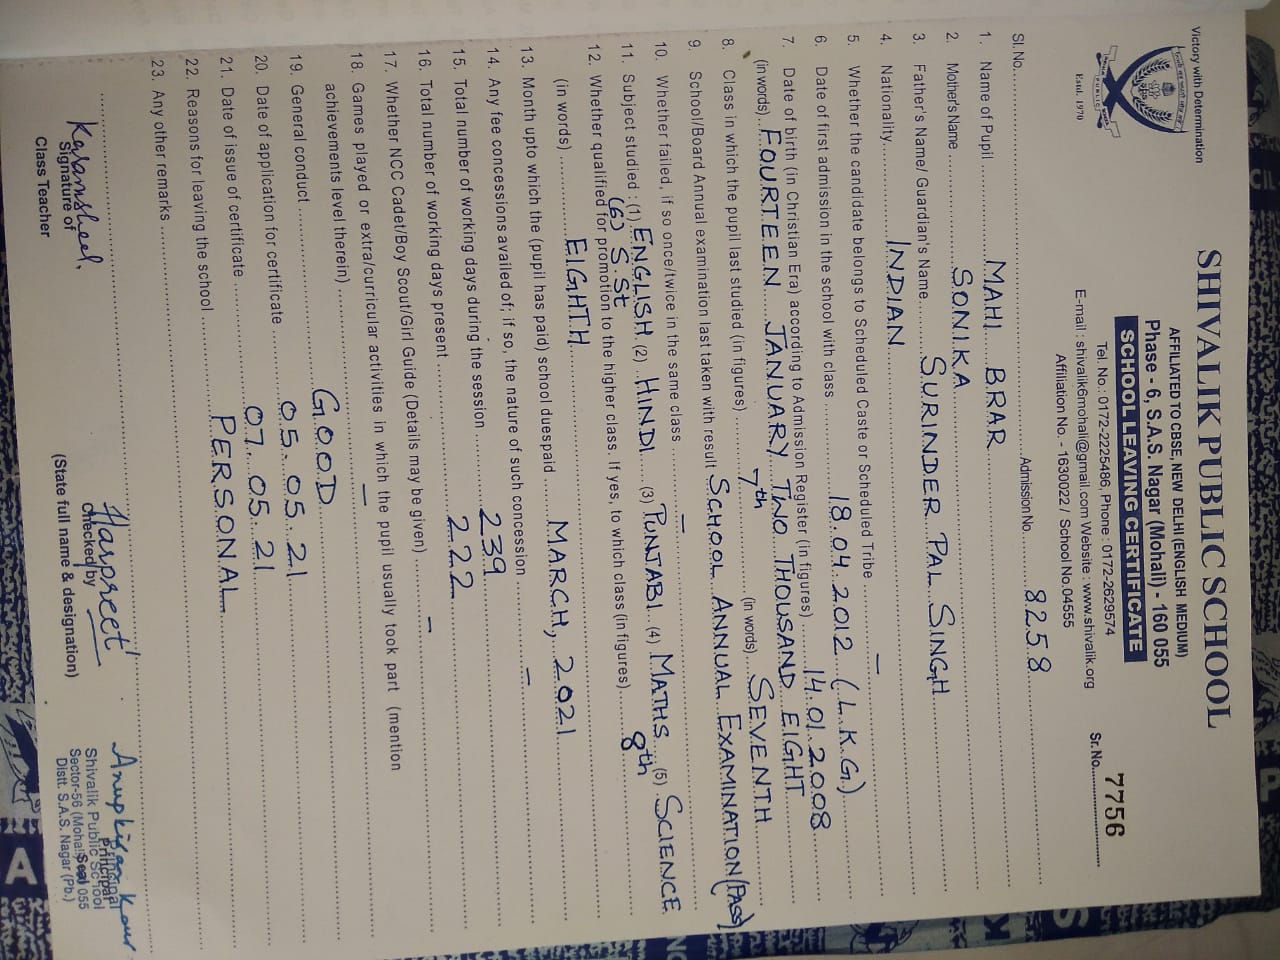 Victory with Determination
Estd. 1970
SHIVALIK PUBLIC SCHOOL
AFFILIATED TO CBSE, NEW DELHI (ENGLISH MEDIUM)
Phase - 6, S.A.S. Nagar (Mohali) - 160 055
SCHOOL LEAVING CERTIFICATE
Tel. No. : 0172-2225486, Phone : 0172-2629574
E-mail : shivalik6mohali@gmail.com Website : www.shivalik.org
Affiliation No. - 1630022 / School No.04555
Sr. No. 7756
Sl. No. Admission No. 8258
1. Name of Pupil MAHI BRAR
2. Mother's Name SONIKA
3. Father's Name/ Guardian's Name SURINDER PAL SINGH
4. Nationality INDIAN
5. Whether the candidate belongs to Scheduled Caste or Scheduled Tribe —
6. Date of first admission in the school with class 18.04.2012 (L.K.G.)
7. Date of birth (in Christian Era) according to Admission Register (in figures) 14.01.2008
(in words) FOURTEEN JANUARY TWO THOUSAND EIGHT
8. Class in which the pupil last studied (in figures) 7th (in words) SEVENTH
9. School/Board Annual examination last taken with result SCHOOL ANNUAL EXAMINATION (PASS)
10. Whether failed, if so once/twice in the same class —
11. Subject studied : (1) ENGLISH (2) HINDI (3) PUNJABI (4) MATHS (5) SCIENCE
(6) S.St
12. Whether qualified for promotion to the higher class. If yes, to which class (in figures) 8th
(in words) EIGHTH
13. Month upto which the (pupil has paid) school duespaid MARCH, 2021
14. Any fee concessions availed of; if so, the nature of such concession —
15. Total number of working days during the session 239
16. Total number of working days present 222
17. Whether NCC Cadet/Boy Scout/Girl Guide (Details may be given) —
18. Games played or extra/curricular activities in which the pupil usually took part (mention
achievements level therein) —
19. General conduct GOOD
20. Date of application for certificate 05.05.21
21. Date of issue of certificate 07.05.21
22. Reasons for leaving the school PERSONAL
23. Any other remarks
Signature of
Class Teacher
Harpreet
checked by
(State full name & designation)
Principal
Shivalik Public School
Seal
Distt. S.A.S. Nagar (Pb.)